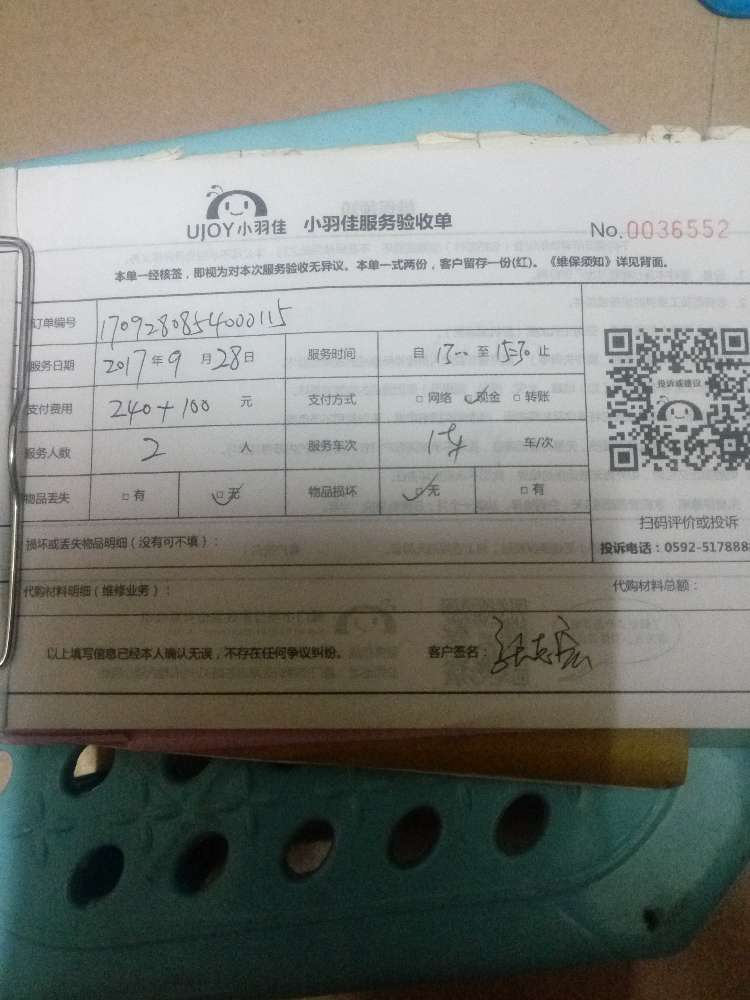 UJOY小羽佳 小羽佳服务验收单 No.0036552
本单一经核签，即视为对本次服务验收无异议。本单一式两份，客户留存一份(红)。《维保须知》详见背面。
订单编号 1709280854000115
服务日期 2017年9月28日 服务时间 自 13:00 至 15:30 止
支付费用 240+100 元 支付方式 □网络 □现金 □转账
服务人数 2 人 服务车次 1 车/次
物品丢失 □有 □无 物品损坏 □无 □有
投诉或建议
扫码评价或投诉
损坏或丢失物品明细（没有可不填）：
投诉电话：0592-517888
代购材料明细（维修业务）：
代购材料总额：
以上填写信息已经本人确认无误，不存在任何争议纠纷。 客户签名：